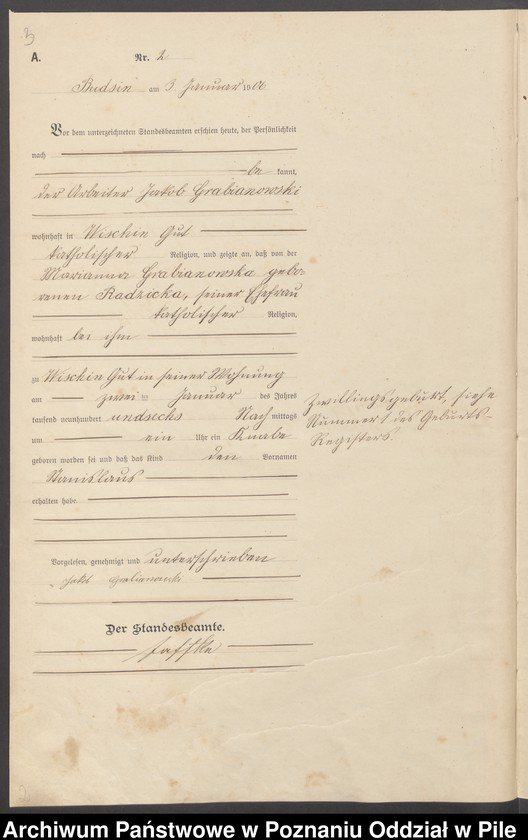 3
A.
Nr. 2
Budsin am 3 Januar 1906
Vor dem unterzeichneten Standesbeamten erschien heute, der Persönlichkeit
nach
be kannt,
der Arbeiter Jakob Grabianowski
wohnhaft in Wischin Gut
katholischer Religion, und zeigte an, daß von der
Marianna Grabianowska gebo-
renen Radzicka, seiner Ehefrau
katholischer Religion,
wohnhaft bei ihm
zu Wischin Gut in seiner Wohnung
am zwei ten Januar des Jahres
tausend neunhundert undsechs Nach mittags
um ein Uhr ein Knabe
geboren worden sei und daß das Kind den Vornamen
Stanislaus
erhalten habe.
Zwillingsgeburt, siehe
Nummer 1 des Geburts-
Registers.
Vorgelesen, genehmigt und unterschrieben
Jakob Grabianowski
Der Standesbeamte.
Jaffke
Archiwum Państwowe w Poznaniu Oddział w Pile